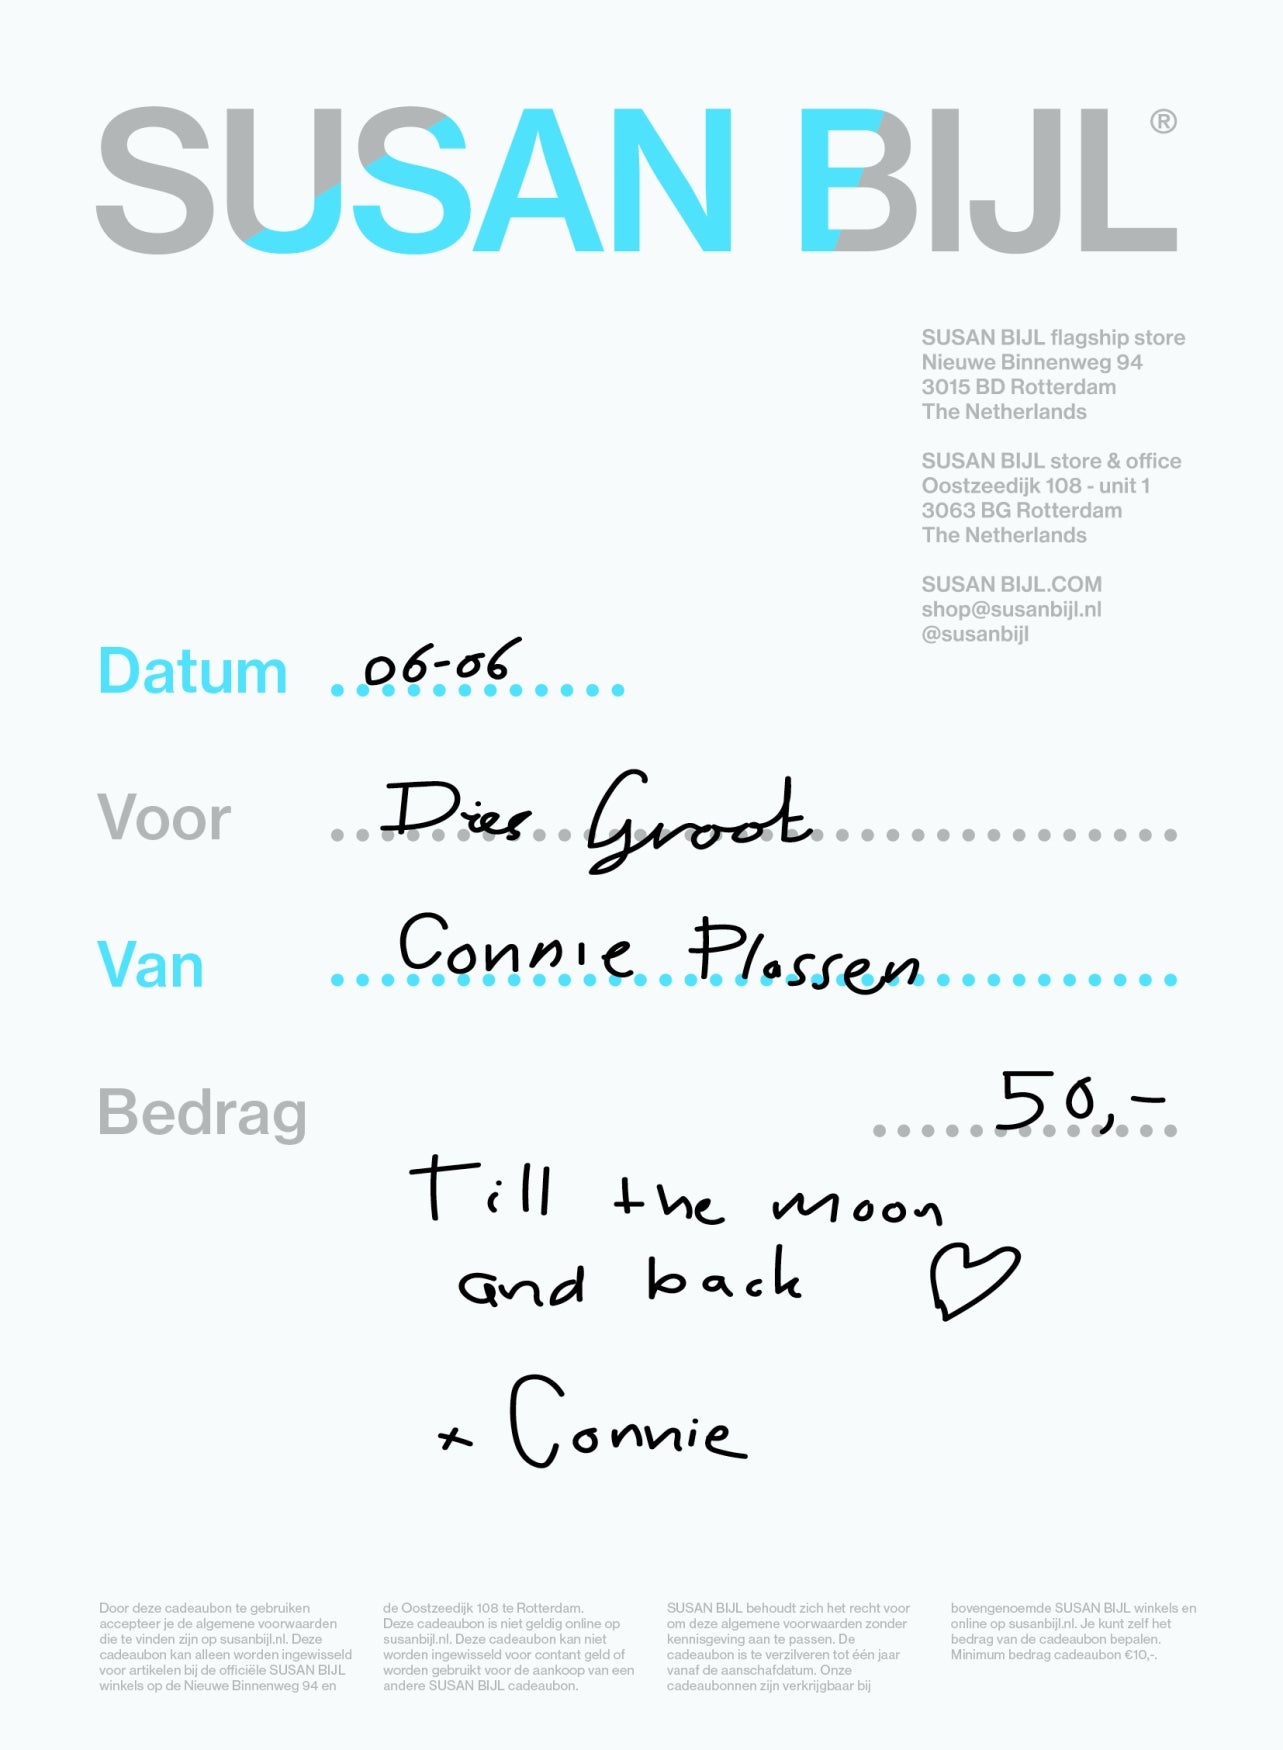 SUSAN BIJL®
SUSAN BIJL flagship store
Nieuwe Binnenweg 94
3015 BD Rotterdam
The Netherlands
SUSAN BIJL store & office
Oostzeedijk 108 - unit 1
3063 BG Rotterdam
The Netherlands
SUSAN BIJL.COM
shop@susanbijl.nl
@susanbijl
Datum 06-06
Voor Dies Groot
Van Connie Plassen
Bedrag 50,-
Till the moon
and back ♡
x Connie
Door deze cadeaubon te gebruiken
accepteer je de algemene voorwaarden
die te vinden zijn op susanbijl.nl. Deze
cadeaubon kan alleen worden ingewisseld
voor artikelen bij de officiële SUSAN BIJL
winkels op de Nieuwe Binnenweg 94 en
de Oostzeedijk 108 te Rotterdam.
Deze cadeaubon is niet geldig online op
susanbijl.nl. Deze cadeaubon kan niet
worden ingewisseld voor contant geld of
worden gebruikt voor de aankoop van een
andere SUSAN BIJL cadeaubon.
SUSAN BIJL behoudt zich het recht voor
om deze algemene voorwaarden zonder
kennisgeving aan te passen. De
cadeaubon is te verzilveren tot één jaar
vanaf de aanschafdatum. Onze
cadeaubonnen zijn verkrijgbaar bij
bovengenoemde SUSAN BIJL winkels en
online op susanbijl.nl. Je kunt zelf het
bedrag van de cadeaubon bepalen.
Minimum bedrag cadeaubon €10,-.